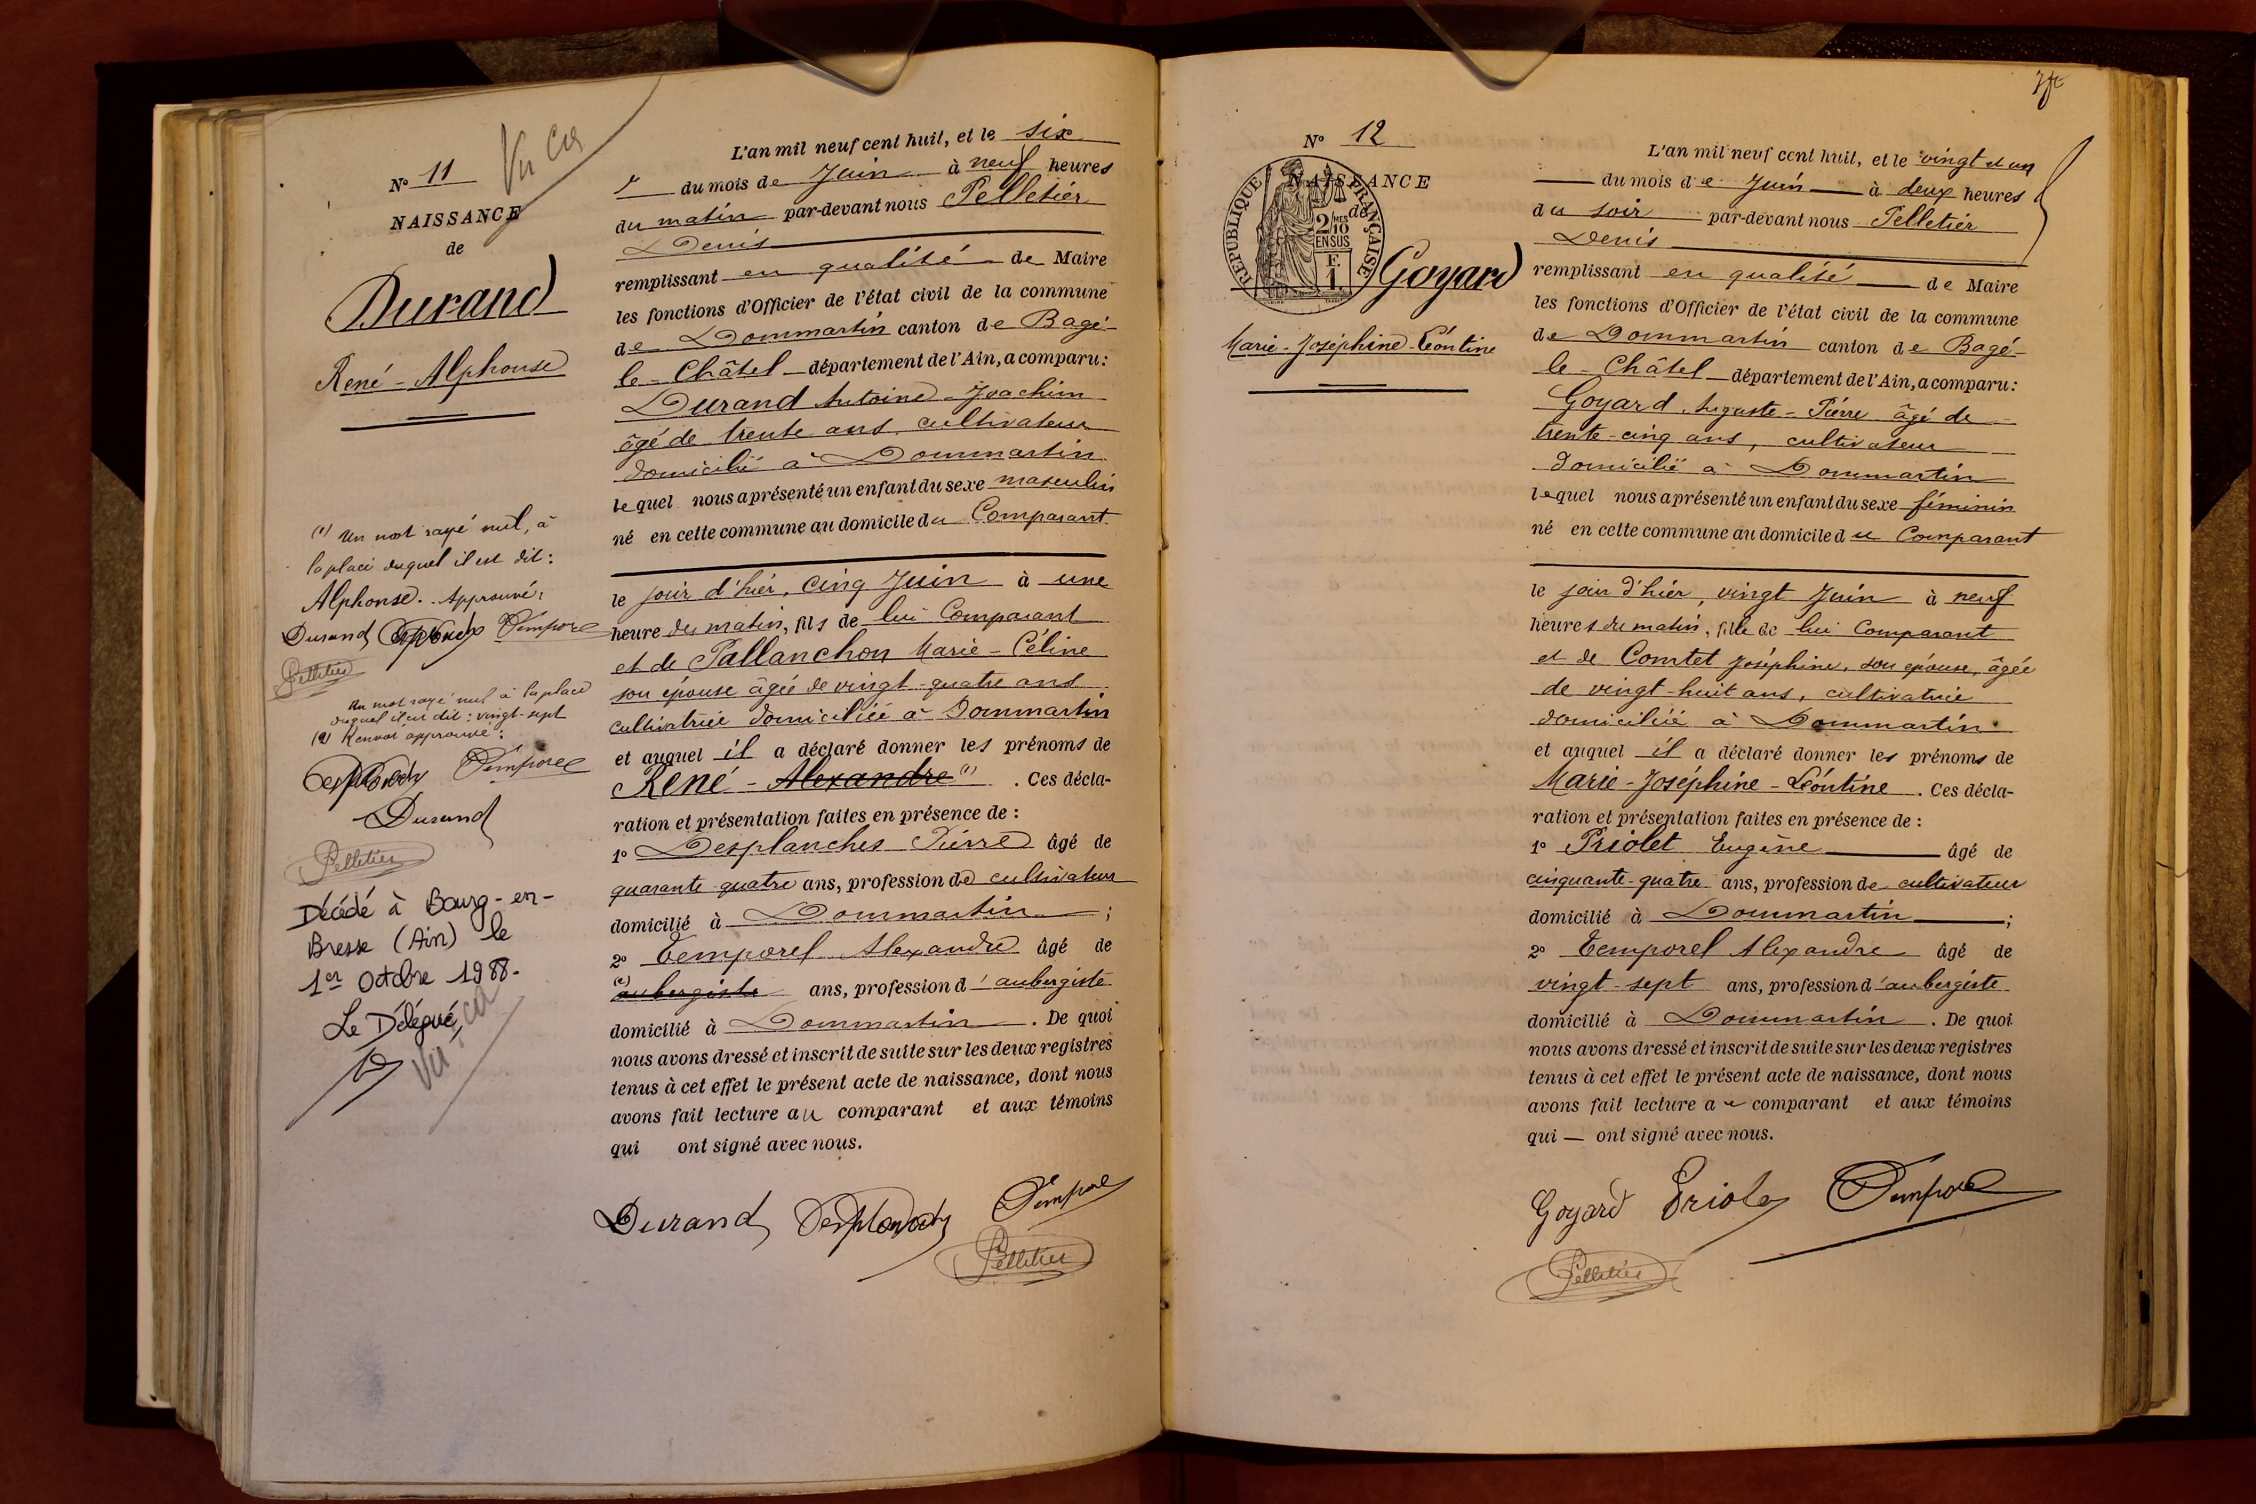 N° 11
Vu ca
NAISSANCE
de
Durand
René - Alphonse
(1) Un mot rayé nul, à
la place duquel il est dit :
Alphonse. Approuvé :
Durand Desplanches Temporel
Pelletier
Un mot rayé nul à la place
duquel il est dit : vingt-sept
(2) Renvoi approuvé :
Desplanches Temporel
Durand
Pelletier
Décédé à Bourg-en-
Bresse (Ain) le
1er Octobre 1988.
Le Délégué,
L'an mil neuf cent huit, et le six
du mois de Juin à neuf heures
du matin par-devant nous Pelletier
Denis
remplissant en qualité de Maire
les fonctions d'Officier de l'état civil de la commune
de Dommartin canton de Bagé-
le-Châtel département de l'Ain, a comparu :
Durand Antoine-Joachim
âgé de trente ans, cultivateur
domicilié à Dommartin
lequel nous a présenté un enfant du sexe masculin
né en cette commune au domicile du Comparant
le jour d'hier, cinq Juin à une
heure du matin, fils de lui Comparant
et de Pallanchon Marie-Céline
son épouse âgée de vingt-quatre ans
cultivatrice domiciliée à Dommartin
et auquel il a déclaré donner les prénoms de
René - Alexandre (1) . Ces décla-
ration et présentation faites en présence de :
1° Desplanches Pierre âgé de
quarante-quatre ans, profession de cultivateur
domicilié à Dommartin ;
2° Temporel Alexandre âgé de
(2) aubergiste ans, profession d'aubergiste
domicilié à Dommartin . De quoi
nous avons dressé et inscrit de suite sur les deux registres
tenus à cet effet le présent acte de naissance, dont nous
avons fait lecture au comparant et aux témoins
qui ont signé avec nous.
Durand Desplanches Temporel
Pelletier
N° 12
NAISSANCE
de
RÉPUBLIQUE FRANÇAISE
2/10
EN SUS
F.
1
Goyard
Marie-Joséphine-Léontine
L'an mil neuf cent huit, et le vingt et un
du mois de Juin à deux heures
du soir par-devant nous Pelletier
Denis
remplissant en qualité de Maire
les fonctions d'Officier de l'état civil de la commune
de Dommartin canton de Bagé-
le-Châtel département de l'Ain, a comparu :
Goyard Auguste-Pierre âgé de
trente-cinq ans, cultivateur
domicilié à Dommartin
lequel nous a présenté un enfant du sexe féminin
né en cette commune au domicile du Comparant
le jour d'hier, vingt Juin à neuf
heures du matin, fille de lui Comparant
et de Comtet Joséphine, son épouse, âgée
de vingt-huit ans, cultivatrice
domiciliée à Dommartin
et auquel il a déclaré donner les prénoms de
Marie-Joséphine-Léontine . Ces décla-
ration et présentation faites en présence de :
1° Priolet Eugène âgé de
cinquante-quatre ans, profession de cultivateur
domicilié à Dommartin ;
2° Temporel Alexandre âgé de
vingt-sept ans, profession d'aubergiste
domicilié à Dommartin . De quoi
nous avons dressé et inscrit de suite sur les deux registres
tenus à cet effet le présent acte de naissance, dont nous
avons fait lecture au comparant et aux témoins
qui — ont signé avec nous.
Goyard Priolet Temporel
Pelletier